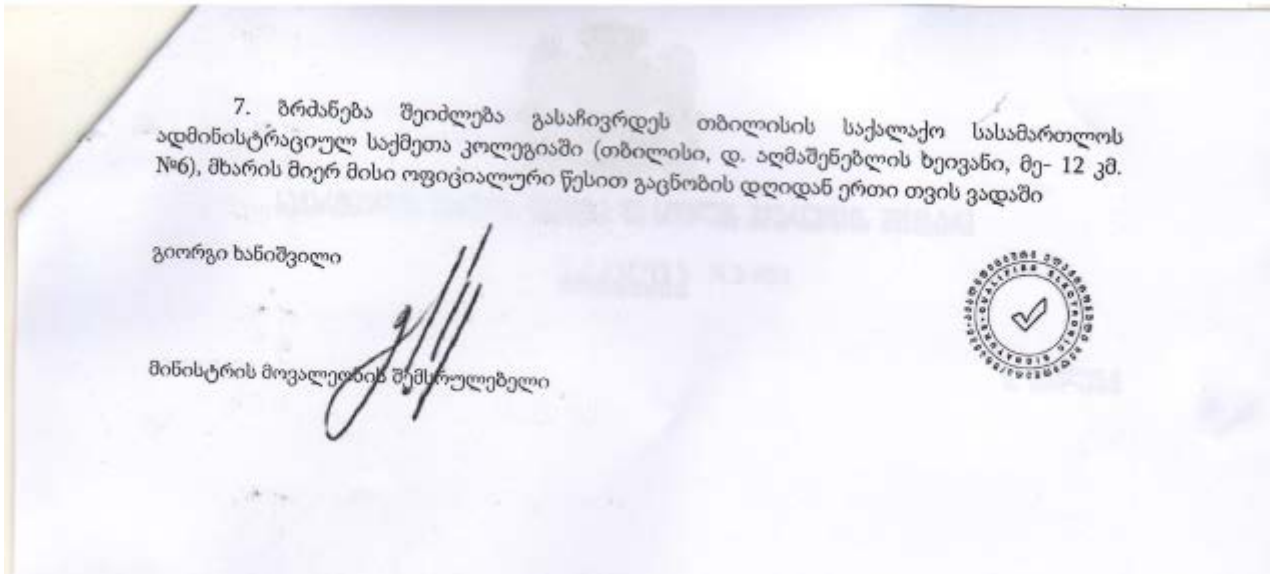 7. ბრძანება შეიძლება გასაჩივრდეს თბილისის საქალაქო სასამართლოს
ადმინისტრაციულ საქმეთა კოლეგიაში (თბილისი, დ. აღმაშენებლის ხეივანი, მე- 12 კმ.
№6), მხარის მიერ მისი ოფიციალური წესით გაცნობის დღიდან ერთი თვის ვადაში
გიორგი ხანიშვილი
QUALIFIED ELECTRONIC SIGNATURE
მინისტრის მოვალეობის შემსრულებელი